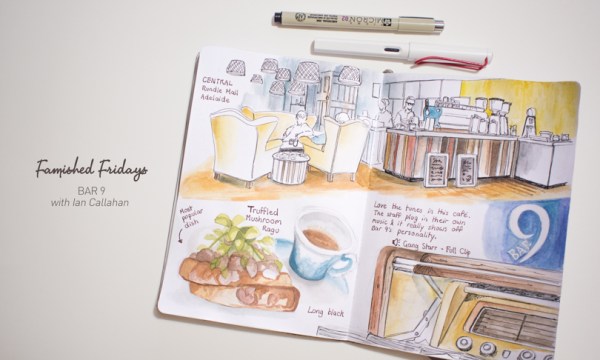 Famished Fridays
BAR 9
with Ian Callahan
CENTRAL
Rundle Mall
Adelaide
Most
popular
dish
Truffled
Mushroom
Ragu
Long black
Love the tunes in this café.
The staff plug in their own
music & it really shows off
Bar 9's personality.
Gang Starr - Full Clip
BAR
9
MICRON